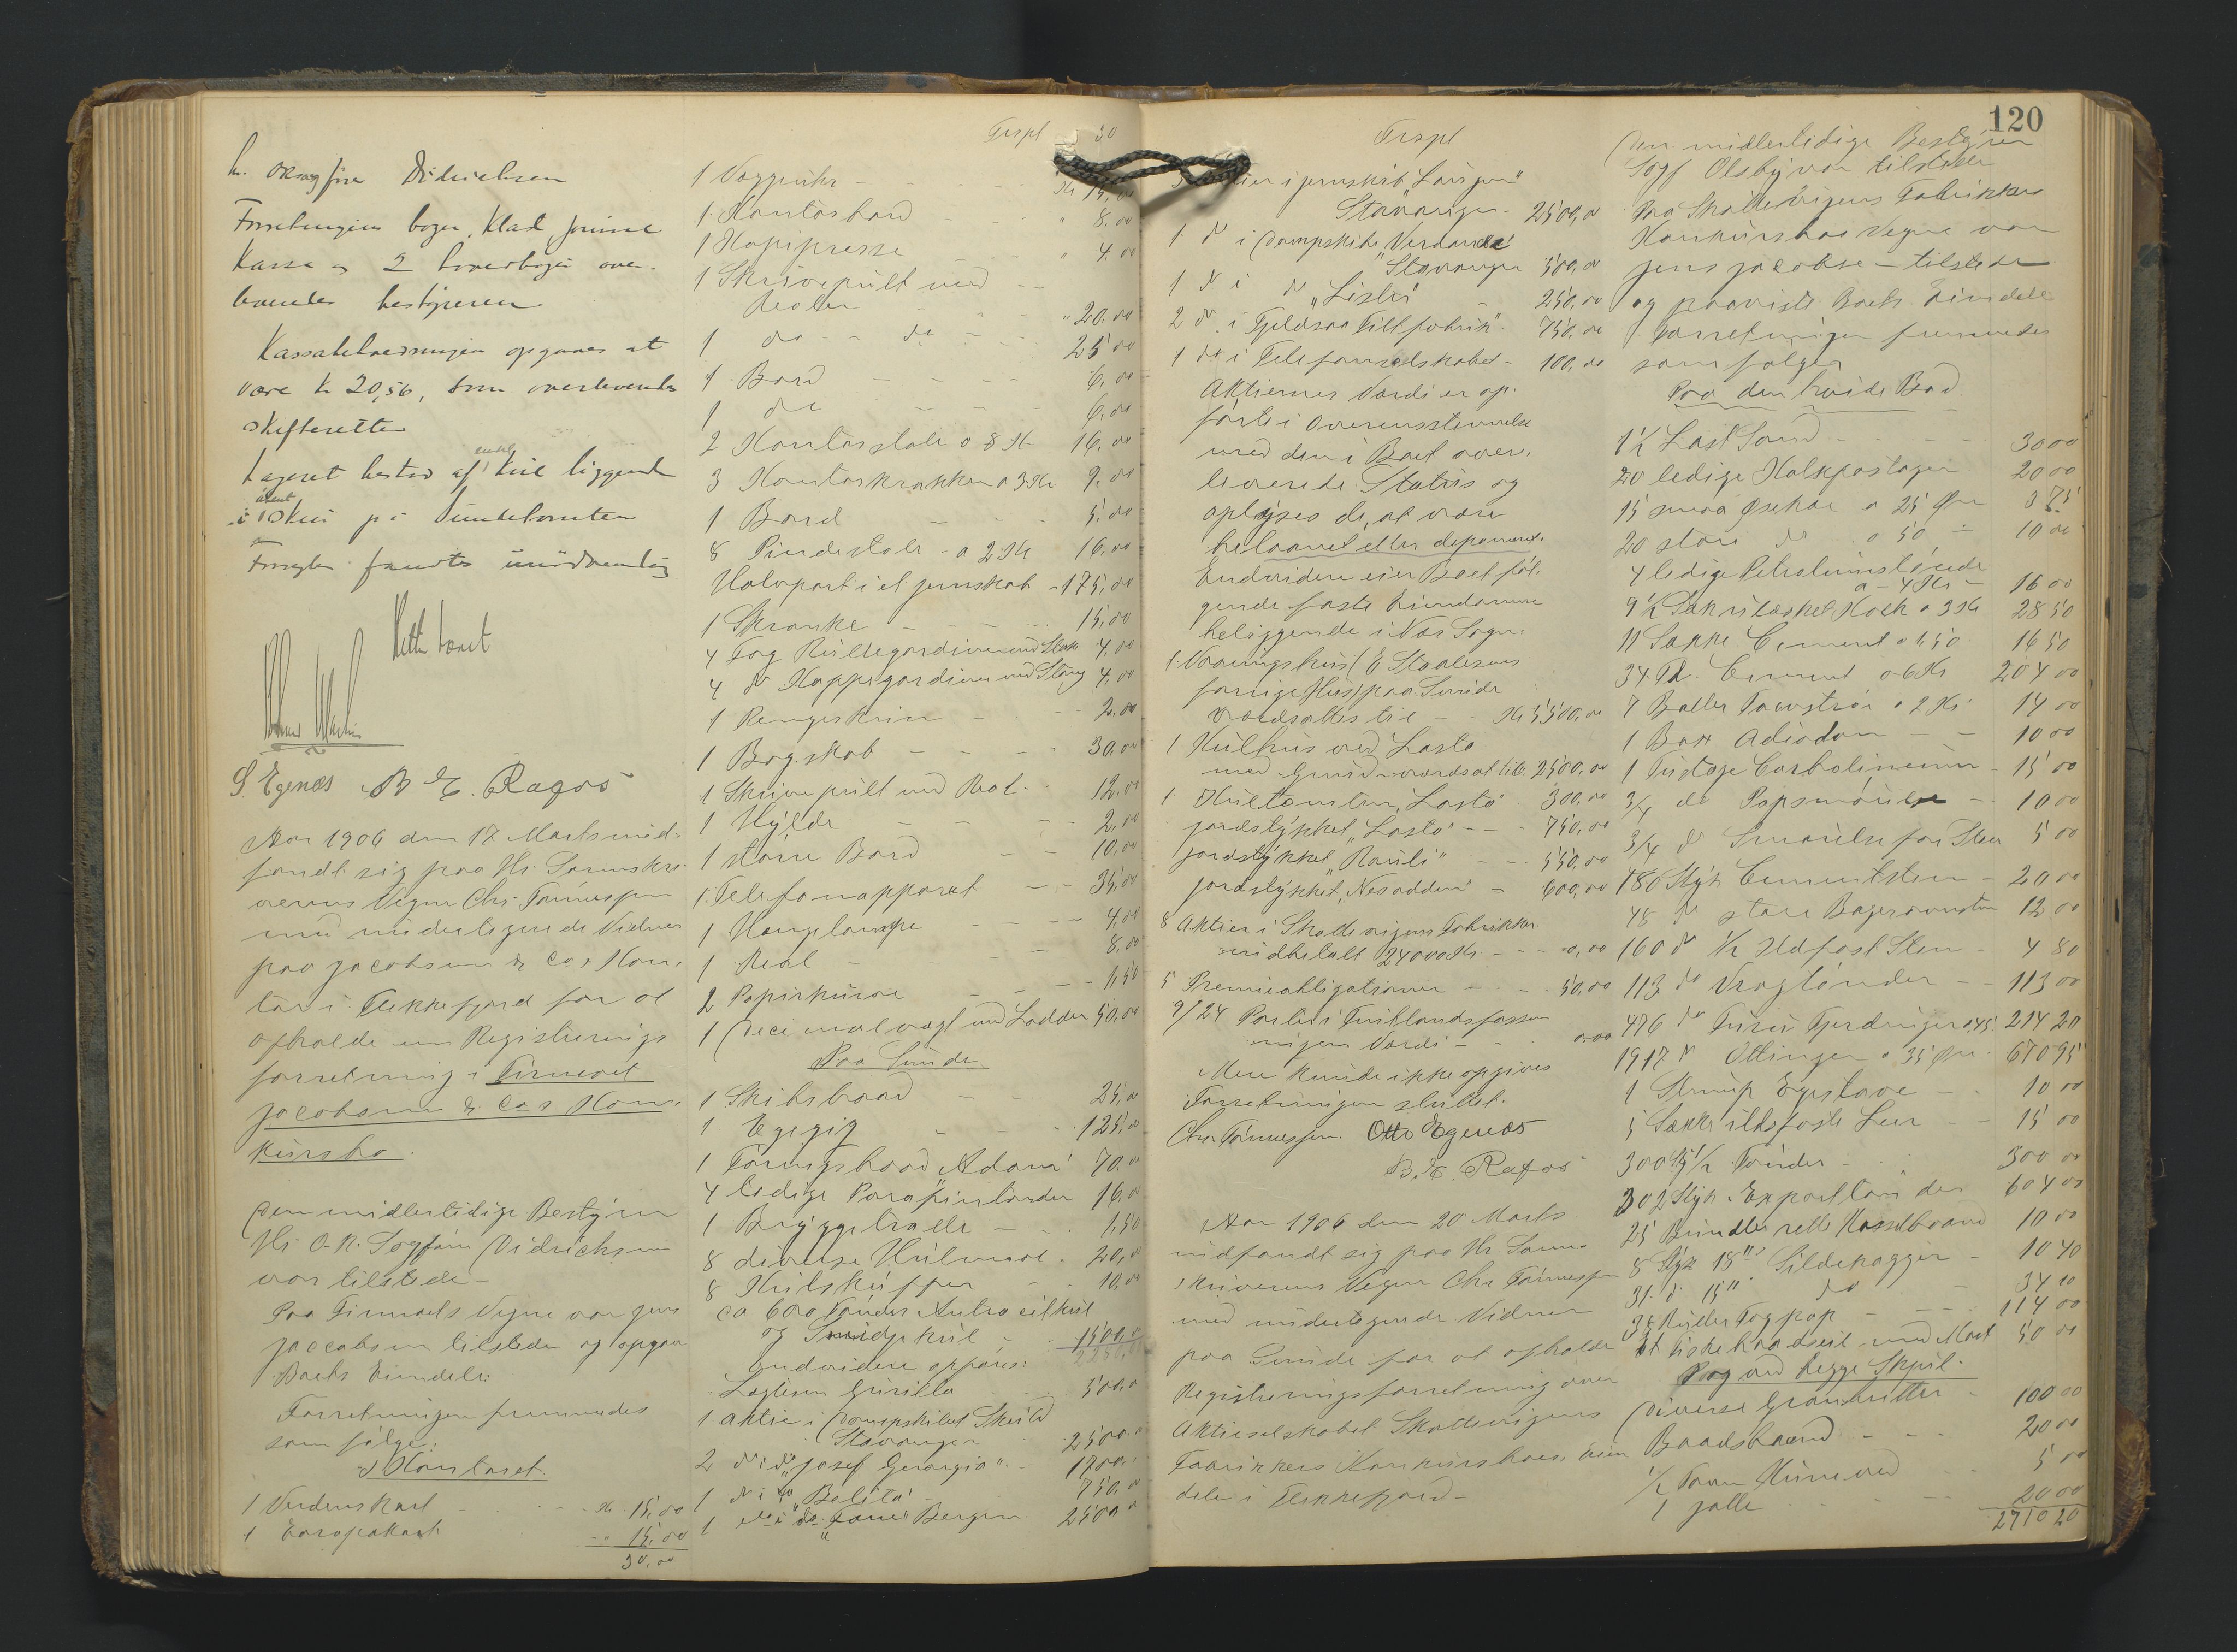 hr. Overretssagfører Didrichsen
Forretningens bøger, Klad, journal
Kassa og 2 hovedbøger over-
leveredes bestyreren
Kassabeholdningen opgaves at
være kr 20,56, som overleveredes
skifteretten
Lageret bestod af kul liggende
i skur på Sundetomten
Forsegling fandtes unødvendig
Rett læret
S. Egenæs B. E. Rafos
Aar 1906 den 17 Marts ind-
fandt sig paa Hr Sorenskri-
verens Vegne Chr. Tønnessen
med undertegnede Vidner
paa Jacobsen & Co.s Kon-
tor i Flekkefjord for at
afholde en Registrerings
forretning i Firmaet
Jacobsen & Co.s Kon-
kursbo.
Den midlertidige Bestyrer
Hr O.R. Sagfører Didrichsen
var tilstede –
Paa Firmaets Vegne var Jens
Jaccobsen tilstede og opgav
Boets Eiendele:
Forretningen fremmedes
som følger:
I Kontoret.
1 Verdenskart - - Kr 15,00
1 Europakart - " 15,00
30,00
Trspt 30
1 Væggeuhr - - Kr 15,00
1 Kontorbord - - " 8,00
1 Kopipresse " 4,00
1 Skrivepult med
Reoler " 20,00
1 do - do - 25,00
1 Bord - - 6,00
1 do 6,00
2 Kontorstole a 8 Kr 16,00
3 Kontorkrakker a 3 Kr 9,00
1 Bord - - 5,00
8 Pindestole - a 2 Kr 16,00
Halvpart i et jernskab - 175,00
1 Skranke - - 15,00
4 Fag Rullegardiner med Stok 4,00
4 do Kappegardiner med Stang 4,00
1 Pengeskrin - - 2,00
1 Bogskab - - 30,00
1 Skrivepult med Reol - 12,00
1 Hylde - - 2,00
1 større Bord - - 10,00
1 Telefonapparat - - 35,00
1 Hængelampe - - 4,00
1 Reol - - 8,00
2 Papirkurve - - 1,50
1 Decimalvægt med Lodder 50,00
Paa Sunde
1 Skibsbaad - - 25,00
1 Egegig - - 125,00
1 Føringsbaad "Adam" 70,00
4 ledige Parafintønder 16,00
1 Bryggetralle - - 1,50
8 diverse Kulmaal - 20,00
8 Kulskuffer - - 10,00
ca 600 Tønder Antracitkul
og Smidjekul - 1500,00
Endvidere opføres:
Lægteren Gurilla 500,00
1 aktie i Dampskibet Skuld
Stavanger 2500,00
2 do i do "Josef Georgio" - 1900,00
1 do i do "Belita" 750,00
1 do i do Bergen 2500,00
Trspt
Aktier i jernskib "Laugen"
Stavanger - 2500,00
1 do i Dampskibet "Verdande"
Stavanger 500,00
1 do i do "Lister" - 250,00
2 do i Fjeldsaa Filtfabrik" - 750,00
1 do i Telefonselskabet - 100,00
Aktiernes Værdi er op-
førte i Overensstemmelse
med den i Boet over-
leverede Status og
oplyses de, at være
belaanet eller deponeret.
Endvidere eier Boet føl-
gende faste Eiendomme
beliggende i Næs Sogn:
1 Vaaningshus (E Staalesens
forrige Hus) paa Sunde
værdsattes til - - Kr 5500,00
1 Kulhus ved Lasto
med Grund værdsat til 2500,00
1 Kultomten "Lasto" 300,00
jordstykket "Lasto" - - 750,00
jordstykket "Rauli" - - 550,00
jordstykket "Nesodden" - 600,00
8 Aktier i Skottevigens Fabrikker
indbetalt 24000 Kr - - 0,00
5 Premieobligationer - - 50,00
9/24 Parter i
Værdi - 0,00
Mere kunde ikke opgives
Forretningen sluttet.
Chr. Tønnessen. Otto Egenæs
B. E. Rafos
Aar 1906 den 20 Marts
indfandt sig paa Hr. Soren-
skriverens Vegne Chr Tønnessen
med undertegnede Vidner
paa Sunde for at afholde
Registreringsforretning over
Aktieselskabet Skottevigens
Fabrikkers Konkursboes Eien
dele i Flekkefjord –
120
Den midlertidige Bestyrer
Sagf Olsby var tilstede
Paa Skottevigens Fabrikkers
Konkursbos Vegne var
Jens Jacobsen tilstede
og paaviste Boets Eiendele
Forretningen fremmedes
som følger
Paa den hvide Bod
1½ Læst Sand - - 30 00
20 ledige Kalkfastager 20 00
15 smaa Øsekar a 25 Øre 3 75
20 store do a 50 - 10 00
4 ledige Petroleumstønder
a - 4 Kr - 16 00
9½ Sæk ulæsket Kalk a 3 Kr 28 50
11 Sække Cement a 1,50 16 50
34 Td. Cement a 6 Kr 204 00
7 Baller Takstrø a 2 Kr 14 00
1 Box Adiodon - - 10 00
1 Fustage Carbolineum - 15 00
3/4 do Papsmørelse - 10 00
3/4 do Smørelse for Sten 5 00
180 Styk Cementsten - 20 00
48 do store Bagerovnsten 12 00
160 do ½ Ildfast Sten - 4 80
113 do Vragtønder - - 113 00
476 do Furu Fjerdinger a 45 214 20
1917 do Ottinger a 35 Øre - 670 95
1 Slump Egestave - 10 00
5 Sække ildsfast Leer - 15 00
300 Styk ½ Tønder - 300 00
302 Styk Exporttønder 604 00
25 Bundter Hasselbaand 10 00
8 Styk 18" Sildekagger - 10 40
31 do 15" do - 34 10
38 Ruller Tagpap - - 114 00
et Fiskebaadseil med Mast 50 00
Paa og ved begge Skjul.
Diverse Granmitter - 100 00
Baadsbaand - - 20 00
½ Favn Kunved - - 5 00
1 Jolle - - 20 00
2710 20